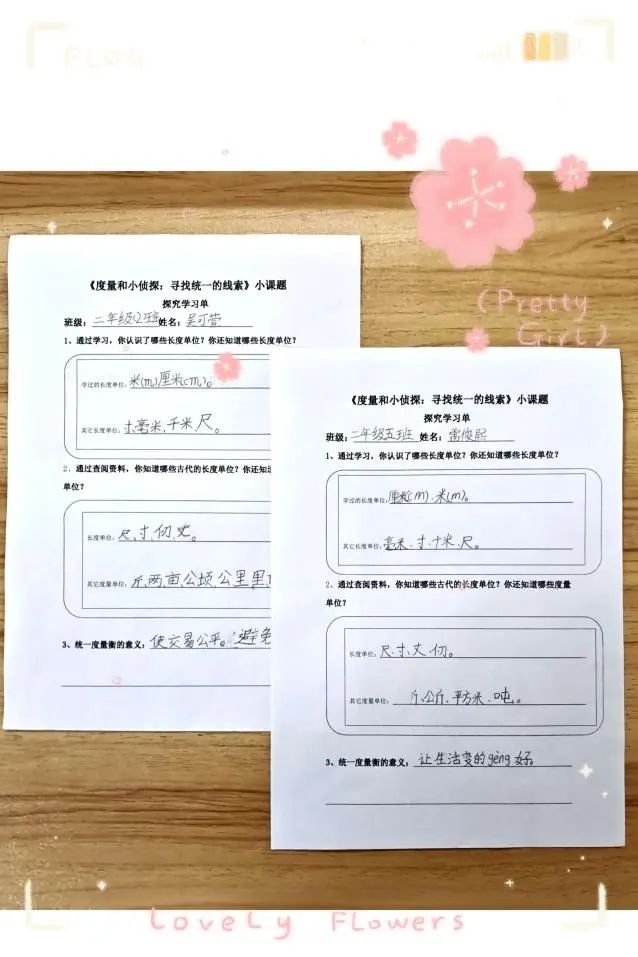 PLOG
(Pretty
Girl)
《度量和小侦探：寻找统一的线索》小课题
探究学习单
班级：二年级(2)班 姓名：吴可萱
1、通过学习，你认识了哪些长度单位？你还知道哪些长度单位？
学过的长度单位：米(m)厘米(cm)。
其它长度单位：寸、毫米、千米、尺。
2、通过查阅资料，你知道哪些古代的长度单位？你还知
单位？
长度单位：尺、寸、仞、丈。
其它度量单位：斤、两、亩、公顷、公里、里、
3、统一度量衡的意义：使交易公平。避免
《度量和小侦探：寻找统一的线索》小课题
探究学习单
班级：二年级五班 姓名：雷俊熙
1、通过学习，你认识了哪些长度单位？你还知道哪些长度单位？
学过的长度单位：厘米(cm)、米(m)。
其它长度单位：毫米、寸、千米、尺。
2、通过查阅资料，你知道哪些古代的长度单位？你还知道哪些度量
单位？
长度单位：尺、寸、丈、仞。
其它度量单位：斤、公斤、平方米、吨。
3、统一度量衡的意义：让生活变的gèng好。
Lovely Flowers